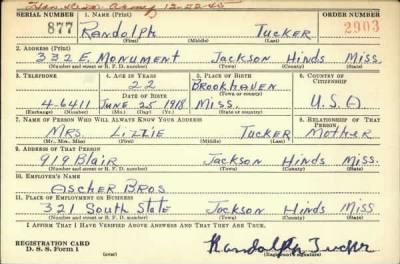 Army 12-22-45
SERIAL NUMBER 1. NAME (Print) ORDER NUMBER
877 RANDOLPH TUCKER 2903
(First) (Middle) (Last)
2. ADDRESS (Print)
332 E. MONUMENT JACKSON HINDS MISS.
(Number and street or R. F. D. number) (Town) (County) (State)
3. TELEPHONE 4. AGE IN YEARS 5. PLACE OF BIRTH 6. COUNTRY OF CITIZENSHIP
22 BROOKHAVEN
DATE OF BIRTH (Town or county)
4-6411 JUNE 25 1918 MISS. U.S.A
(Exchange) (Number) (Mo.) (Day) (Yr.) (State or country)
7. NAME OF PERSON WHO WILL ALWAYS KNOW YOUR ADDRESS 8. RELATIONSHIP OF THAT PERSON
MRS. LIZZIE TUCKER MOTHER
(Mr., Mrs., Miss) (First) (Middle) (Last)
9. ADDRESS OF THAT PERSON
919 BLAIR JACKSON HINDS MISS.
(Number and street or R. F. D. number) (Town) (County) (State)
10. EMPLOYER'S NAME
ASCHER BROS
11. PLACE OF EMPLOYMENT OR BUSINESS
321 SOUTH STATE JACKSON HINDS MISS
(Number and street or R. F. D. number) (Town) (County) (State)
I AFFIRM THAT I HAVE VERIFIED ABOVE ANSWERS AND THAT THEY ARE TRUE.
REGISTRATION CARD
D. S. S. Form 1 (over) Randolph Tucker
(Registrant's signature)